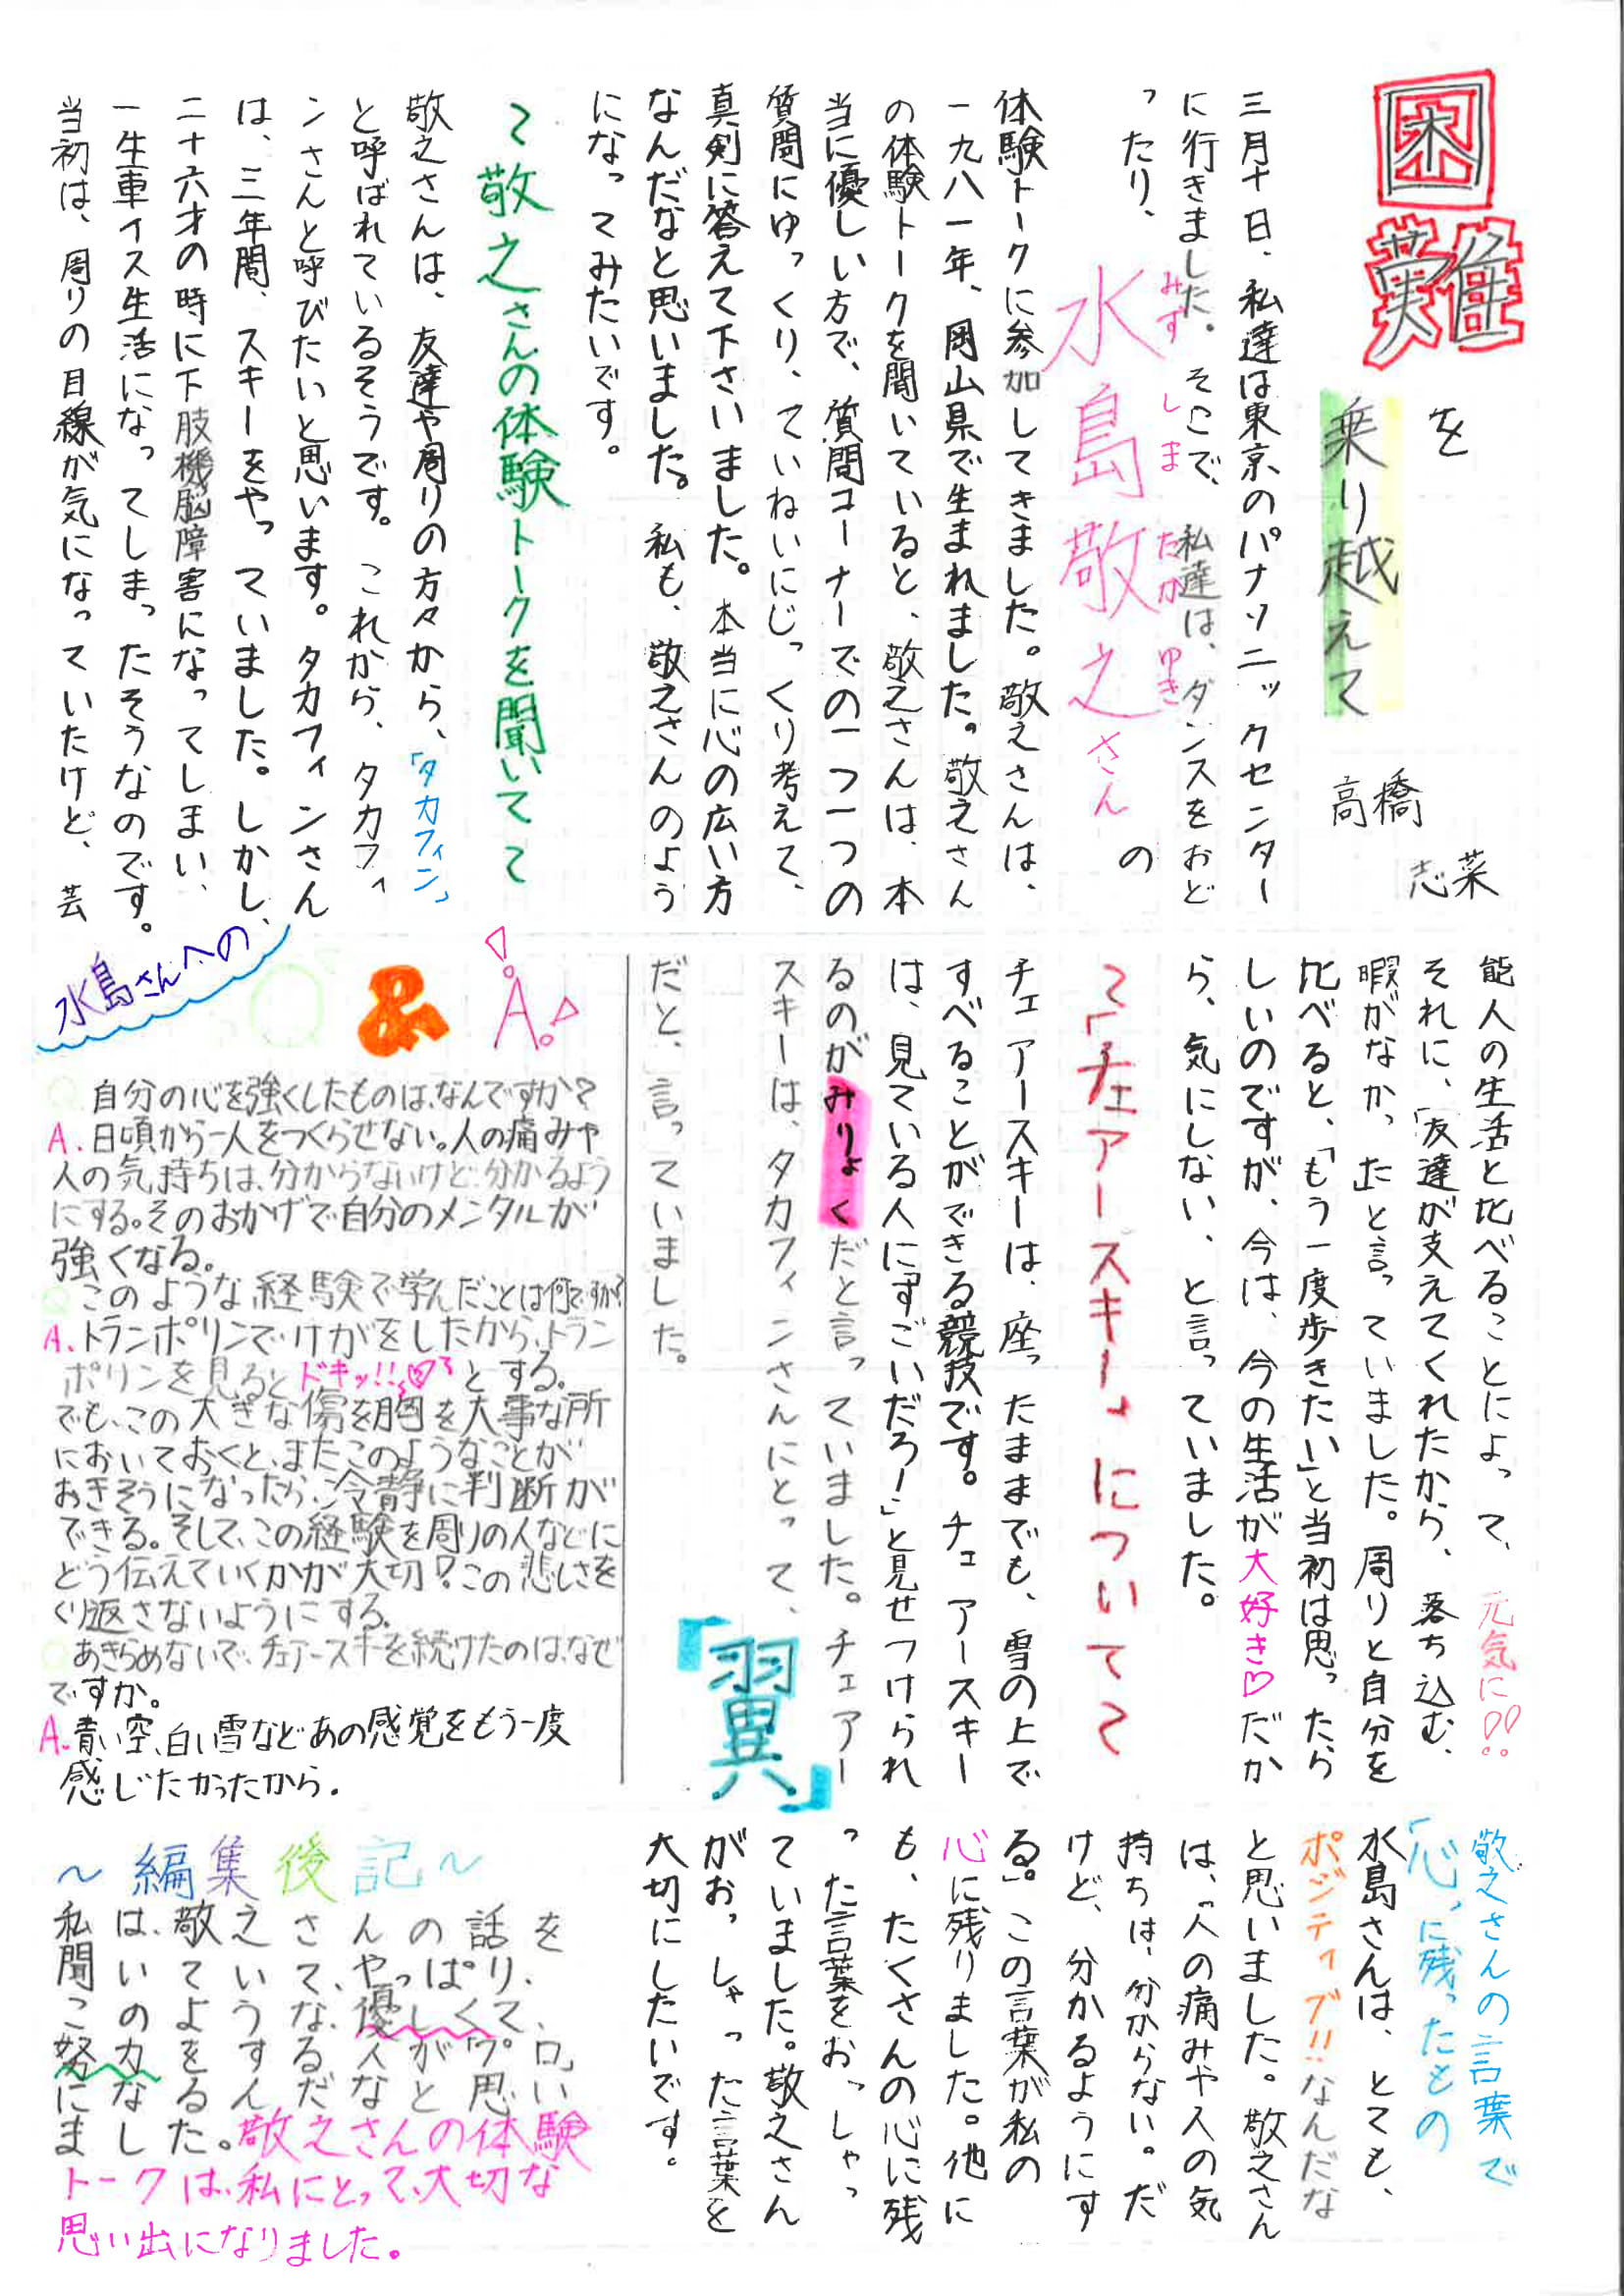 困難
を
乗り越えて
高橋
志菜
三月十日、私達は東京のパナソニックセンター
に行きました。そこで、私達は、ダンスをおど
ったり、
水島敬之さんの
みずしまたかゆき
体験トークに参加してきました。敬之さんは、
一九八一年、岡山県で生まれました。敬之さん
の体験トークを聞いていると、敬之さんは、本
当に優しい方で、質問コーナーでの一つ一つの
質問にゆっくり、ていねいにじっくり考えて、
真剣に答えて下さいました。本当に心の広い方
なんだなと思いました。私も、敬之さんのよう
になってみたいです。
〜敬之さんの体験トークを聞いて〜
敬之さんは、友達や周りの方々から、「タカフィン」
と呼ばれているそうです。これから、タカフィ
ンさんと呼びたいと思います。タカフィンさん
は、三年間、スキーをやっていました。しかし、
二十六才の時に下肢機脳障害になってしまい、
一生車イス生活になってしまったそうなのです。
当初は、周りの目線が気になっていたけど、芸
能人の生活と比べることによって、元気に!!
それに、「友達が支えてくれたから、落ち込む、
暇がなかった」と言っていました。周りと自分を
比べると、「もう一度歩きたい」と当初は思ったら
しいのですが、今は、今の生活が大好き♡だか
ら、気にしない、と言っていました。
〜「チェアースキー」について〜
チェアースキーは、座ったままでも、雪の上で
すべることができる競技です。チェアースキー
は、見ている人に「すごいだろー」と見せつけられ
るのがみりょくだと言っていました。チェアー
スキーは、タカフィンさんにとって、
「翼」
だと、言っていました。
水島さんへの
Q&A!
Q 自分の心を強くしたものは、なんですか?
A. 日頃から一人をつくらせない。人の痛みや
人の気持ちは、分からないけど、分かるよう
にする。そのおかげで自分のメンタルが
強くなる。
Q このような経験で学んだことは何ですか?
A. トランポリンでけがをしたから、トラン
ポリンを見るとドキッ!!♡とする。
でも、この大きな傷を胸を大事な所
においておくと、またこのようなことが
おきそうになったら、冷静に判断が
できる。そして、この経験を周りの人などに
どう伝えていくかが大切!この悲しさを
くり返さないようにする。
Q あきらめないで、チェアースキーを続けたのは、なぜ
ですか。
A. 青い空、白い雪などあの感覚をもう一度
感じたかったから.
敬之さんの言葉で
「心」に残ったもの
水島さんは、とても、
ポジティブ!!なんだな
と思いました。敬之さん
は、「人の痛みや人の気
持ちは、分からない。だ
けど、分かるようにす
る」。この言葉が私の
心に残りました。他に
も、たくさんの心に残
った言葉をおっしゃっ
ていました。敬之さん
がおっしゃった言葉を
大切にしたいです。
〜編集後記〜
私は、敬之さんの話を
聞いていて、やっぱり、
この よう な、優しくて、
努力をする人が「プロ」
になるんだなと思い
ました。敬之さんの体験
トークは、私にとって、大切な
思い出になりました。